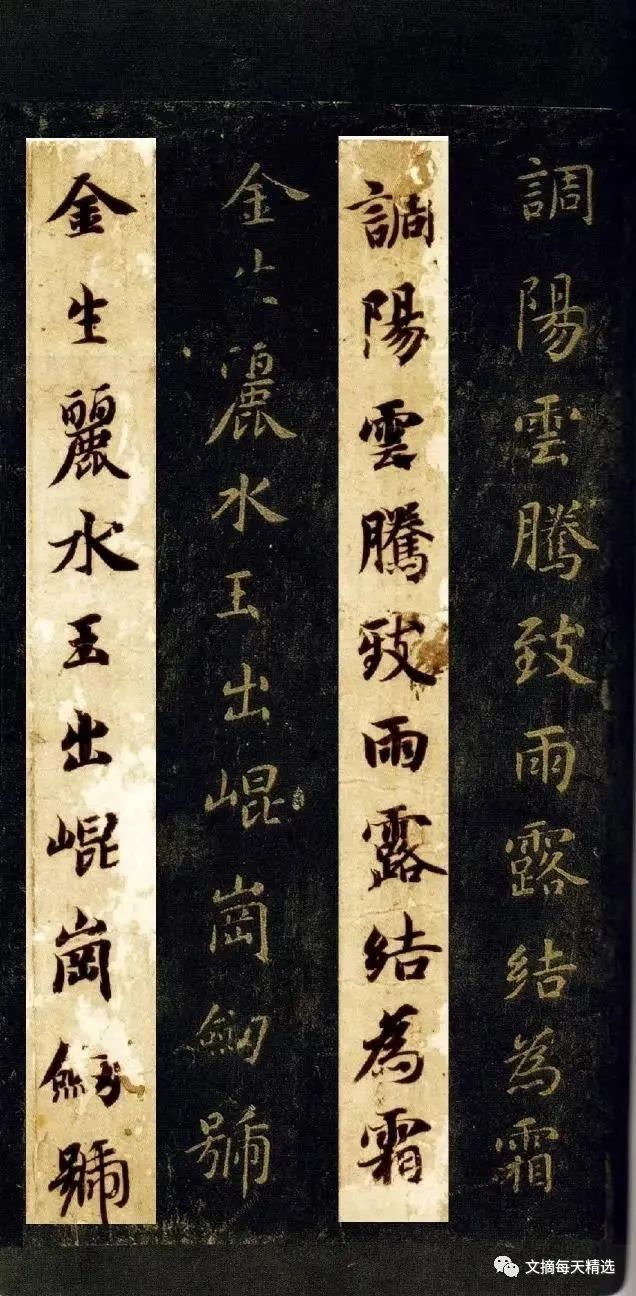 調陽雲騰致雨露結為霜
調陽雲騰致雨露結為霜
金生麗水玉出崐崗劒號
金生麗水玉出崐崗劒號
文摘每天精选